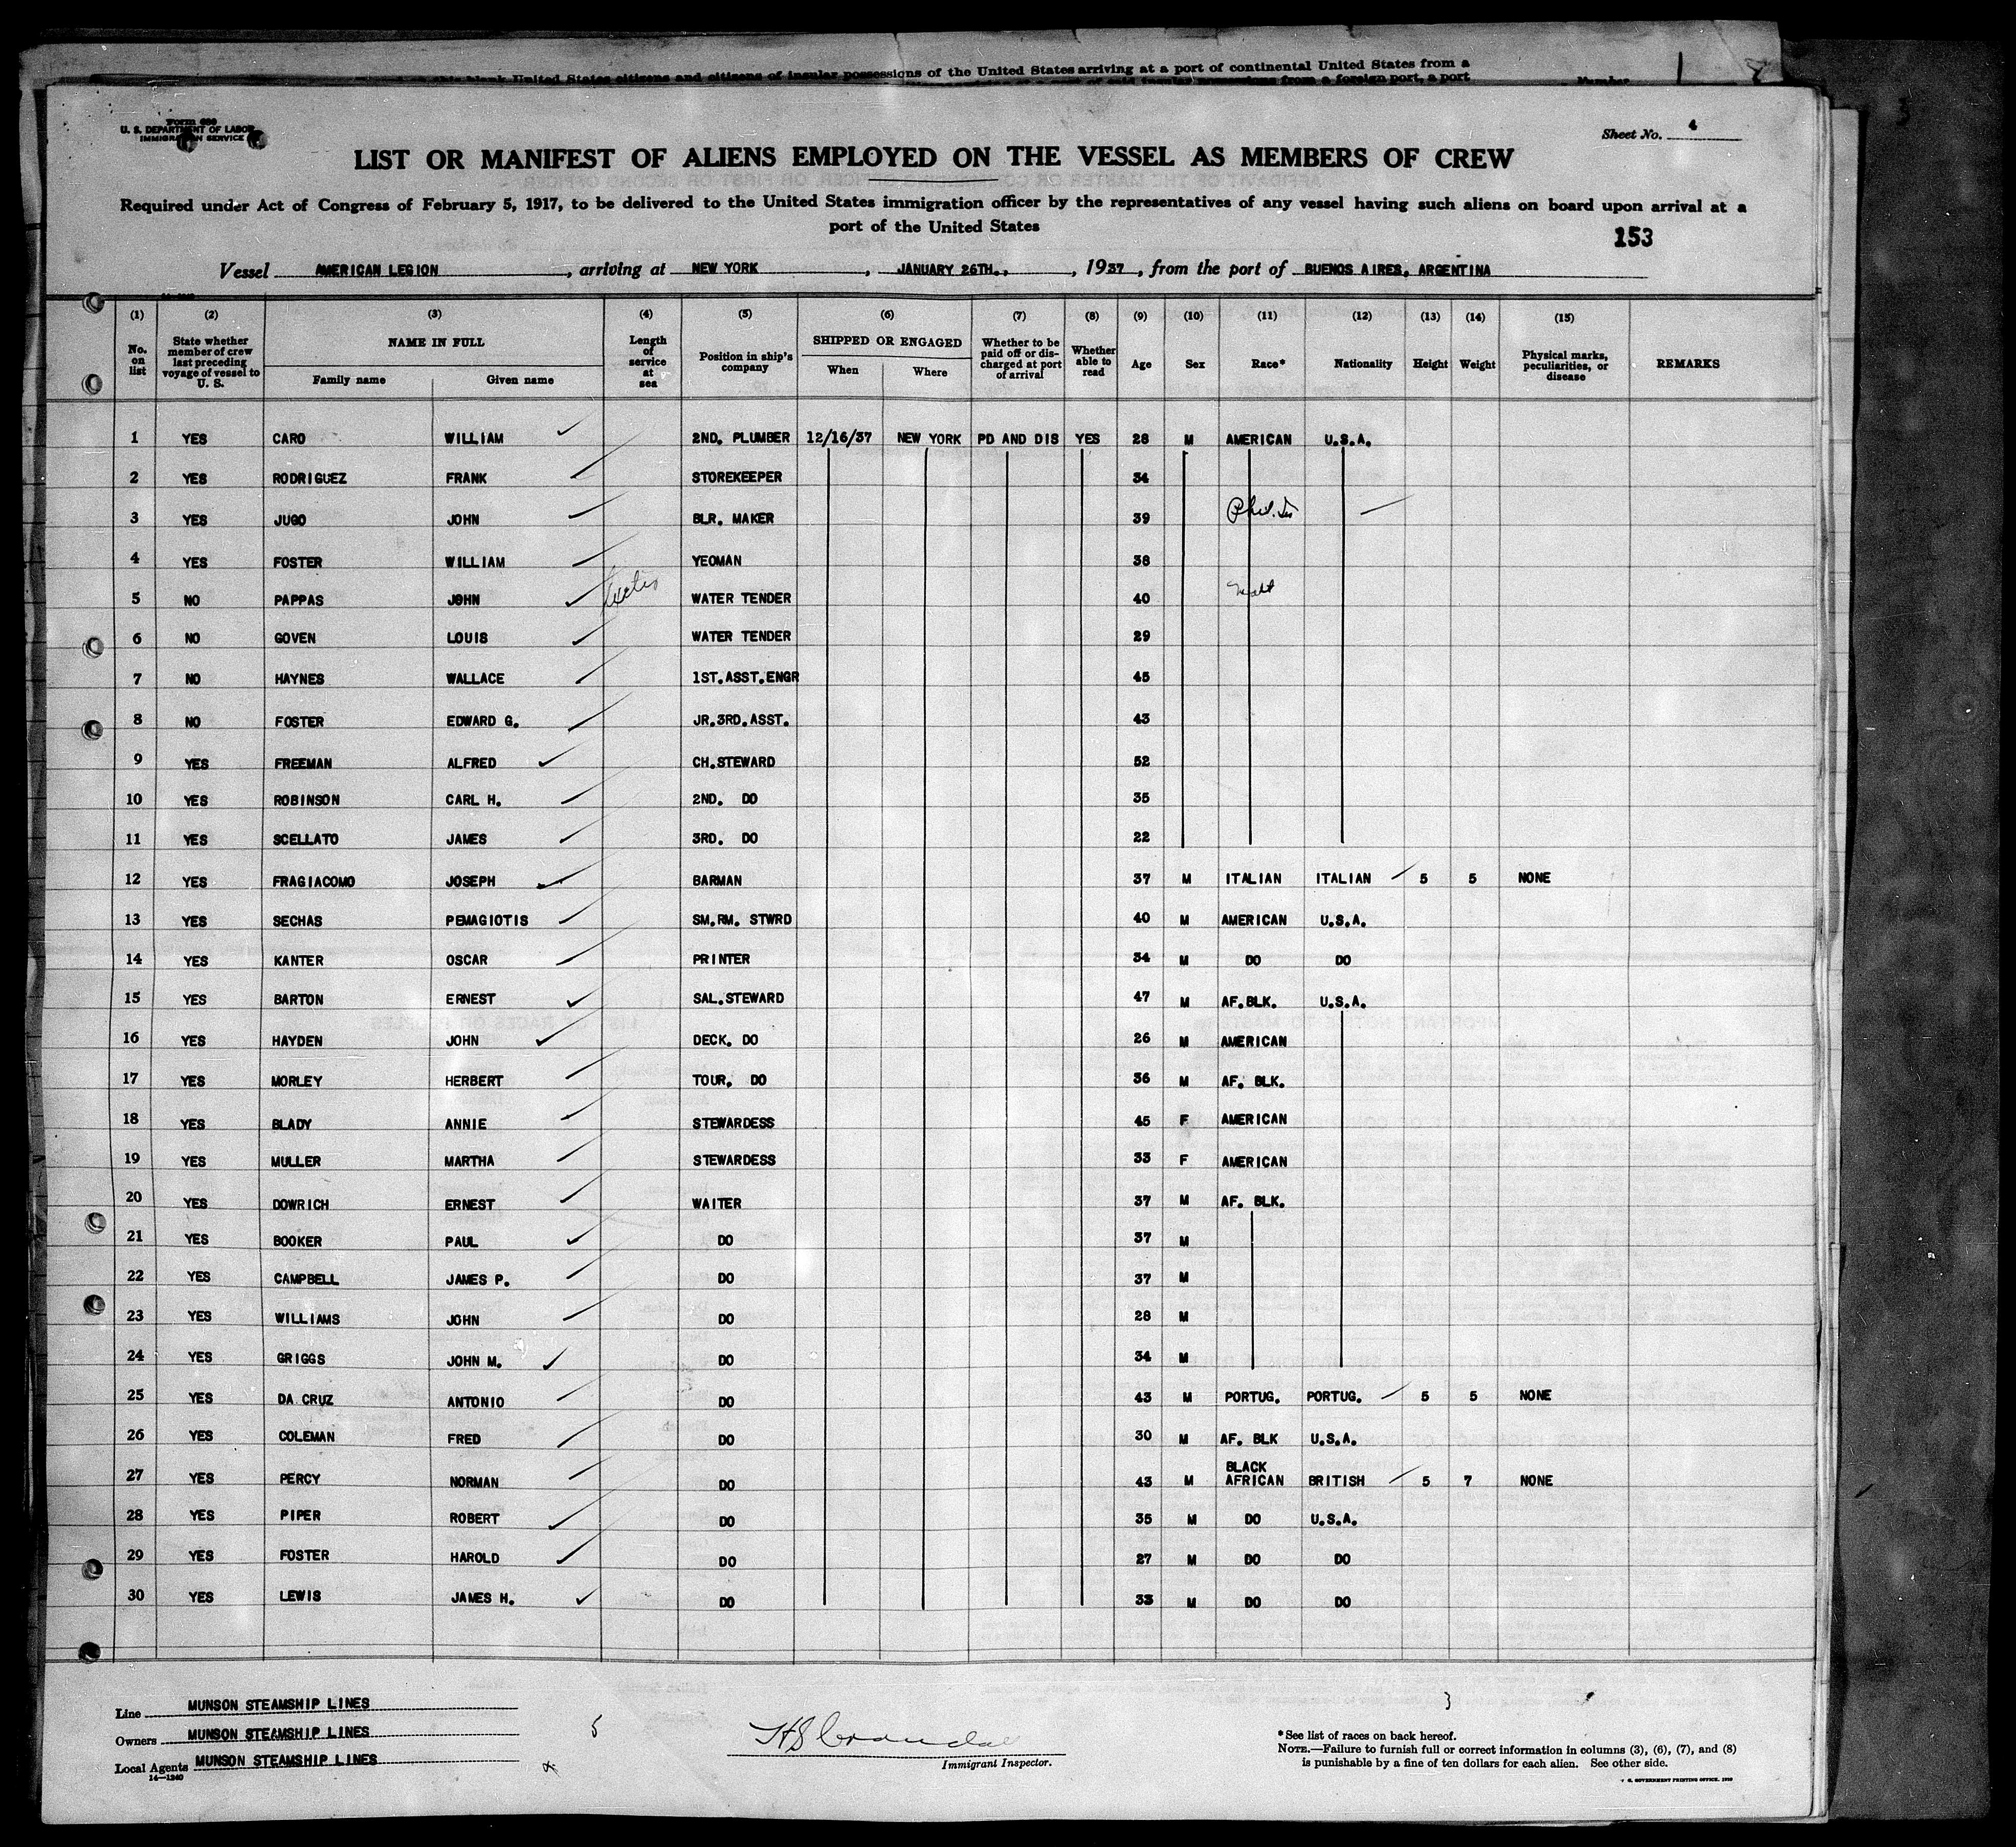 this blank United States citizens and citizens of insular possessions of the United States arriving at a port of continental United States from a
Number 1
Form 689
U. S. DEPARTMENT OF LABOR
IMMIGRATION SERVICE
Sheet No. 4
LIST OR MANIFEST OF ALIENS EMPLOYED ON THE VESSEL AS MEMBERS OF CREW
Required under Act of Congress of February 5, 1917, to be delivered to the United States immigration officer by the representatives of any vessel having such aliens on board upon arrival at a
port of the United States
153
Vessel AMERICAN LEGION, arriving at NEW YORK, JANUARY 26TH., , 1937, from the port of BUENOS AIRES, ARGENTINA
(1) (2) (3) (4) (5) (6) (7) (8) (9) (10) (11) (12) (13) (14) (15)
No. on list State whether member of crew last preceding voyage of vessel to U. S. NAME IN FULL Family name Given name Length of service at sea Position in ship's company SHIPPED OR ENGAGED When Where Whether to be paid off or discharged at port of arrival Whether able to read Age Sex Race* Nationality Height Weight Physical marks, peculiarities, or disease REMARKS
1 YES CARO WILLIAM 2ND. PLUMBER 12/16/37 NEW YORK PD AND DIS YES 28 M AMERICAN U.S.A.
2 YES RODRIGUEZ FRANK STOREKEEPER 34
3 YES JUGO JOHN BLR. MAKER 39
4 YES FOSTER WILLIAM YEOMAN 38
5 NO PAPPAS JOHN WATER TENDER 40
6 NO GOVEN LOUIS WATER TENDER 29
7 NO HAYNES WALLACE 1ST.ASST.ENGR 45
8 NO FOSTER EDWARD G. JR.3RD.ASST. 43
9 YES FREEMAN ALFRED CH.STEWARD 52
10 YES ROBINSON CARL H. 2ND. DO 35
11 YES SCELLATO JAMES 3RD. DO 22
12 YES FRAGIACOMO JOSEPH BARMAN 37 M ITALIAN ITALIAN 5 5 NONE
13 YES SECHAS PEMAGIOTIS SM.RM. STWRD 40 M AMERICAN U.S.A.
14 YES KANTER OSCAR PRINTER 34 M DO DO
15 YES BARTON ERNEST SAL.STEWARD 47 M AF.BLK. U.S.A.
16 YES HAYDEN JOHN DECK. DO 26 M AMERICAN
17 YES MORLEY HERBERT TOUR. DO 36 M AF. BLK.
18 YES BLADY ANNIE STEWARDESS 45 F AMERICAN
19 YES MULLER MARTHA STEWARDESS 33 F AMERICAN
20 YES DOWRICH ERNEST WAITER 37 M AF. BLK.
21 YES BOOKER PAUL DO 37 M
22 YES CAMPBELL JAMES P. DO 37 M
23 YES WILLIAMS JOHN DO 28 M
24 YES GRIGGS JOHN M. DO 34 M
25 YES DA CRUZ ANTONIO DO 43 M PORTUG. PORTUG. 5 5 NONE
26 YES COLEMAN FRED DO 30 M AF. BLK U.S.A.
27 YES PERCY NORMAN DO 43 M BLACK AFRICAN BRITISH 5 7 NONE
28 YES PIPER ROBERT DO 35 M DO U.S.A.
29 YES FOSTER HAROLD DO 27 M DO DO
30 YES LEWIS JAMES H. DO 33 M DO DO
Line MUNSON STEAMSHIP LINES
Owners MUNSON STEAMSHIP LINES
Local Agents MUNSON STEAMSHIP LINES
14—1240
Immigrant Inspector.
*See list of races on back hereof.
NOTE.—Failure to furnish full or correct information in columns (3), (6), (7), and (8)
is punishable by a fine of ten dollars for each alien. See other side.